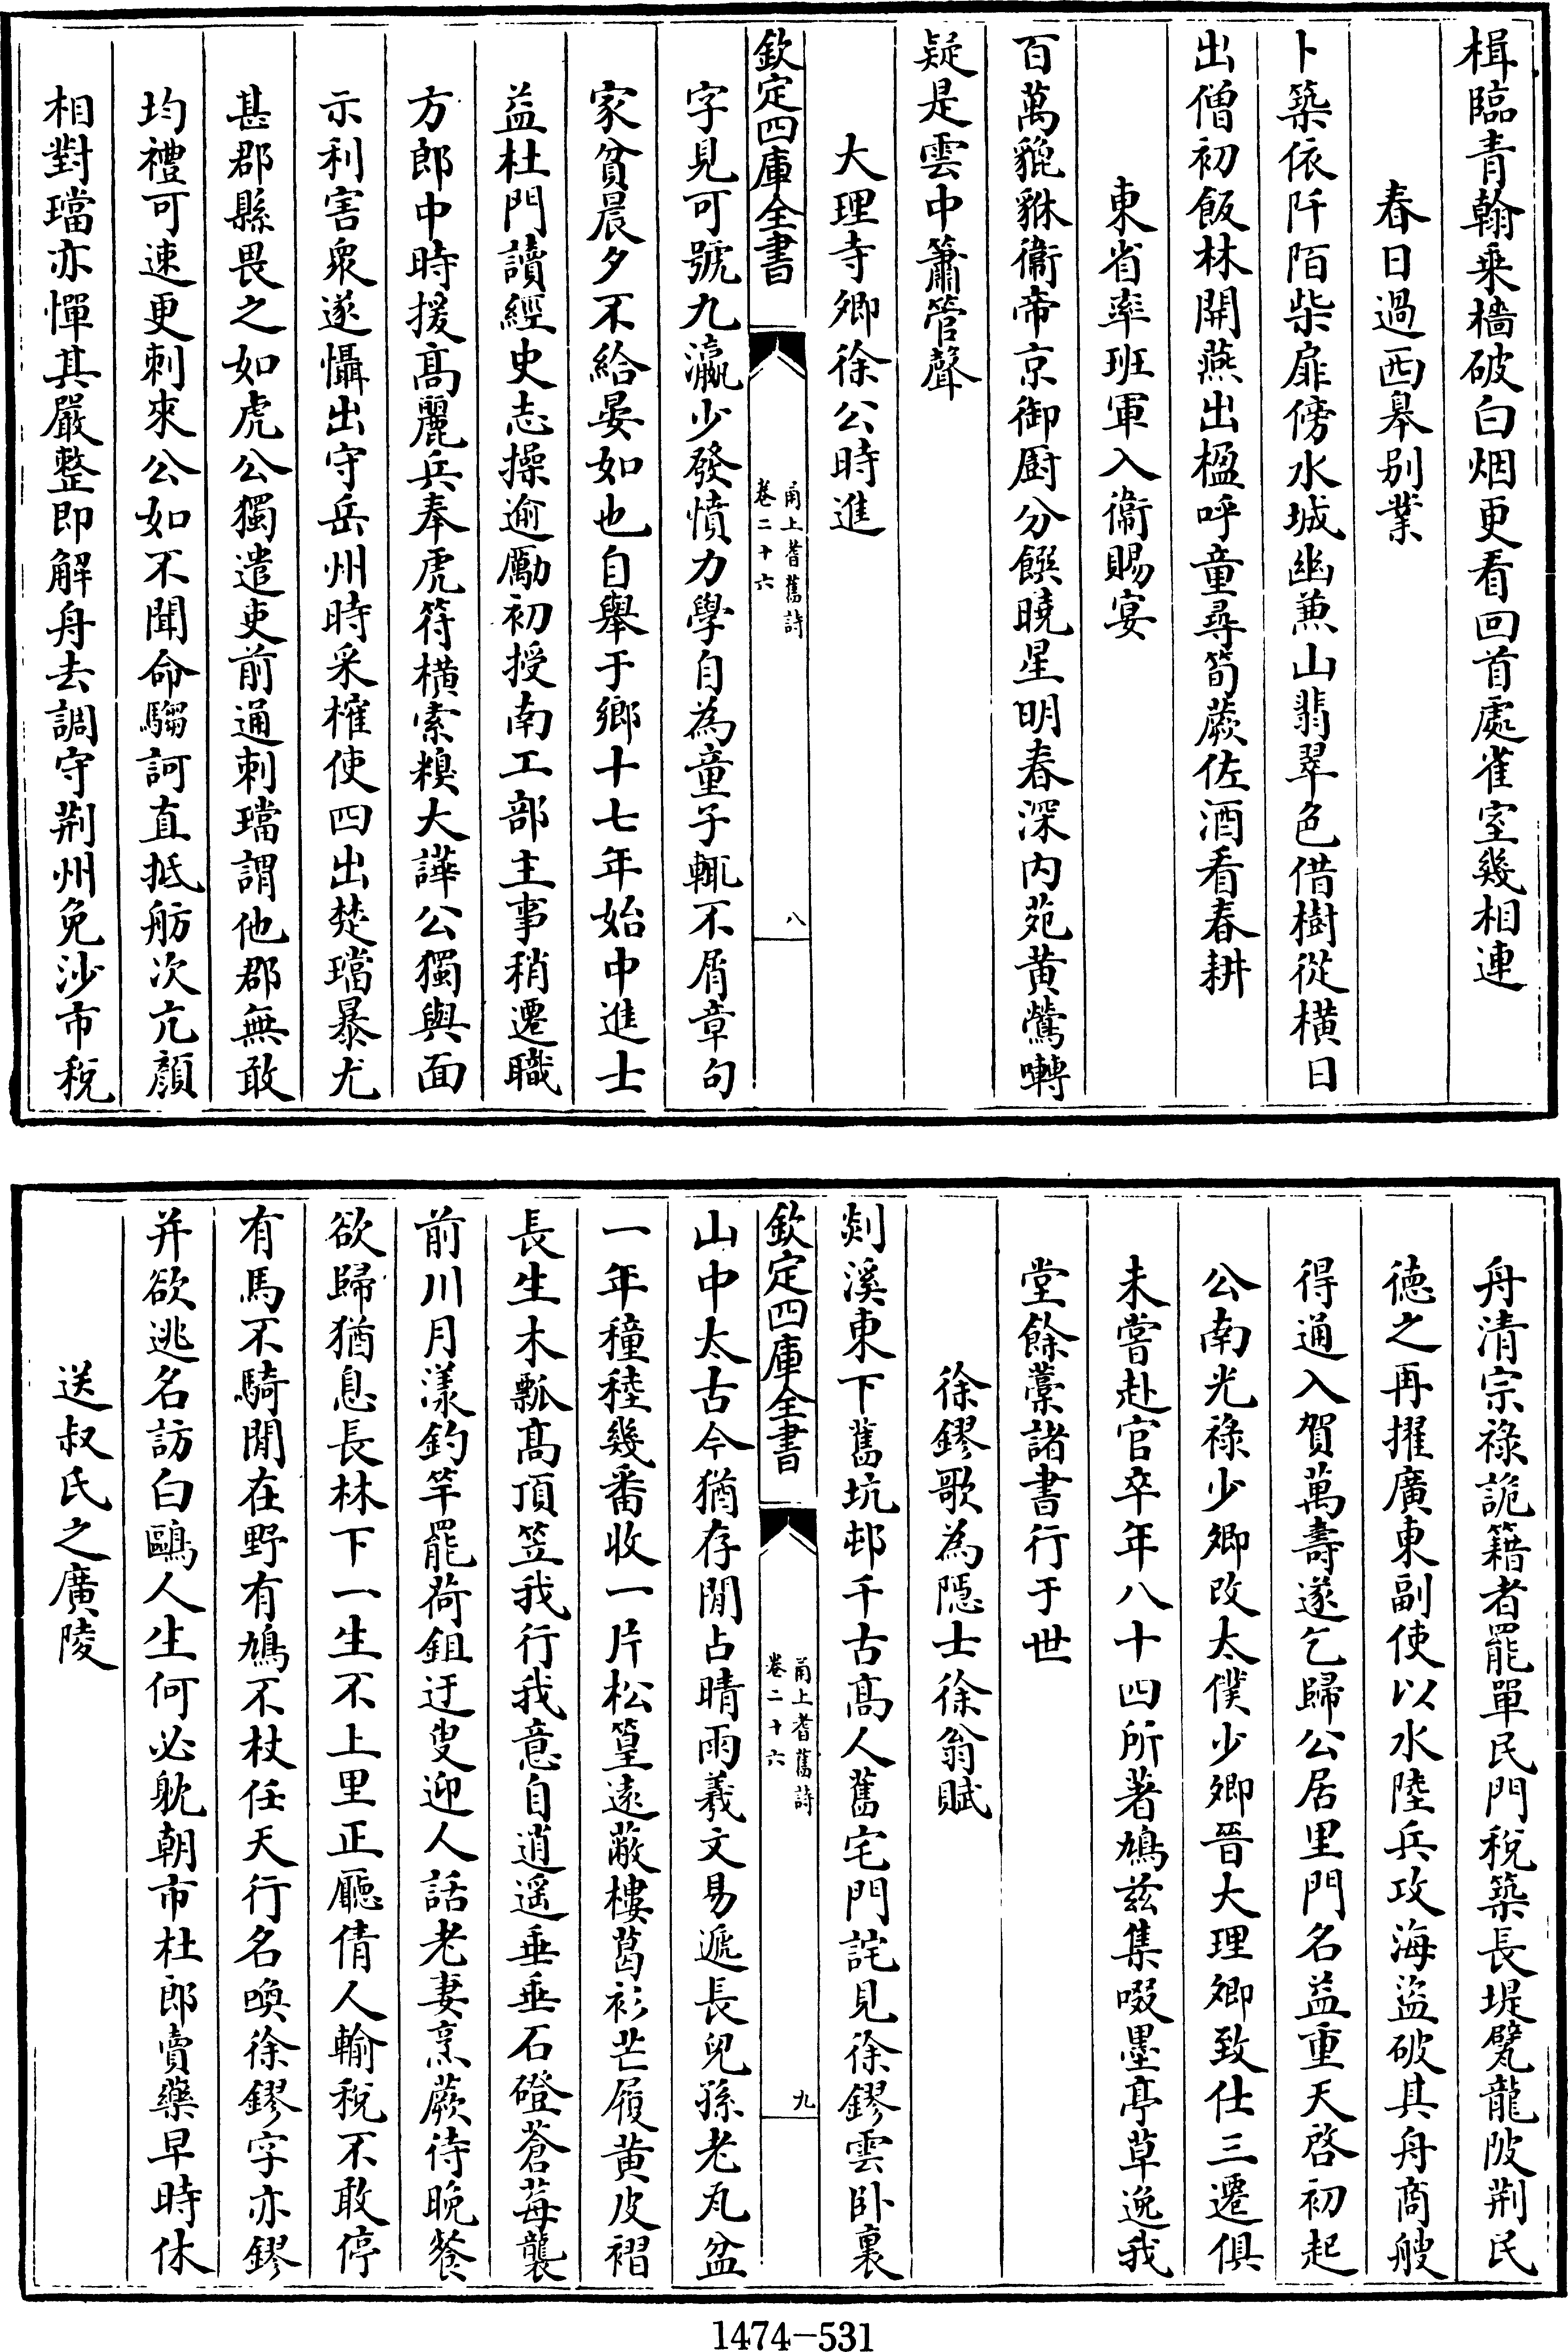 楫臨青翰乗檣破白烟更看回首處雀室幾相連
春日過西皋别業
卜築依阡陌柴扉傍水城幽兼山翡翠色借樹從横日
出僧初飯林開燕出楹呼童尋筍蕨佐酒看春耕
東省率班軍入衞賜宴
百萬貔貅衞帝京御厨分饌曉星明春深内苑黄鶯囀
疑是雲中簫管聲
大理寺卿徐公時進
欽定四庫全書
甬上耆舊詩
卷二十六
八
字見可號九瀛少發憤力學自為童子輒不屑章句
家貧晨夕不給晏如也自舉于鄉十七年始中進士
益杜門讀經史志操逾勵初授南工部主事稍遷職
方郎中時援髙麗兵奉虎符横索糗大譁公獨與面
示利害衆遂懾出守岳州時采榷使四出楚璫暴尤
甚郡縣畏之如虎公獨遣吏前通刺璫謂他郡無敢
均禮可速更刺來公如不聞命騶訶直抵舫次亢顔
相對璫亦憚其嚴整即解舟去調守荆州免沙市税
舟清宗祿詭籍者罷單民門税築長堤甓龍陂荆民
徳之再擢廣東副使以水陸兵攻海盜破其舟商艘
得通入賀萬壽遂乞歸公居里門名益重天啓初起
公南光祿少卿改太僕少卿晉大理卿致仕三遷俱
未嘗赴官卒年八十四所著鳩兹集啜墨亭草逸我
堂餘藁諸書行于世
徐鏐歌為隠士徐翁賦
剡溪東下舊坑邨千古髙人舊宅門詫見徐鏐雲卧裏
欽定四庫全書
甬上耆舊詩
卷二十六
九
山中太古今猶存閒占晴雨羲文易遞長兒孫老瓦盆
一年穜稑幾番收一片松篁逺蔽樓葛衫芒履黄皮褶
長生木瓢髙頂笠我行我意自逍遥垂垂石磴蒼莓襲
前川月漾釣竿罷荷鉏迂叟迎人話老妻烹蕨待晚餐
欲歸猶息長林下一生不上里正廳倩人輸税不敢停
有馬不騎閒在野有鳩不杖任天行名喚徐鏐字亦鏐
并欲逃名訪白鷗人生何必躭朝市杜郎賣藥早時休
送叔氏之廣陵
1474-531